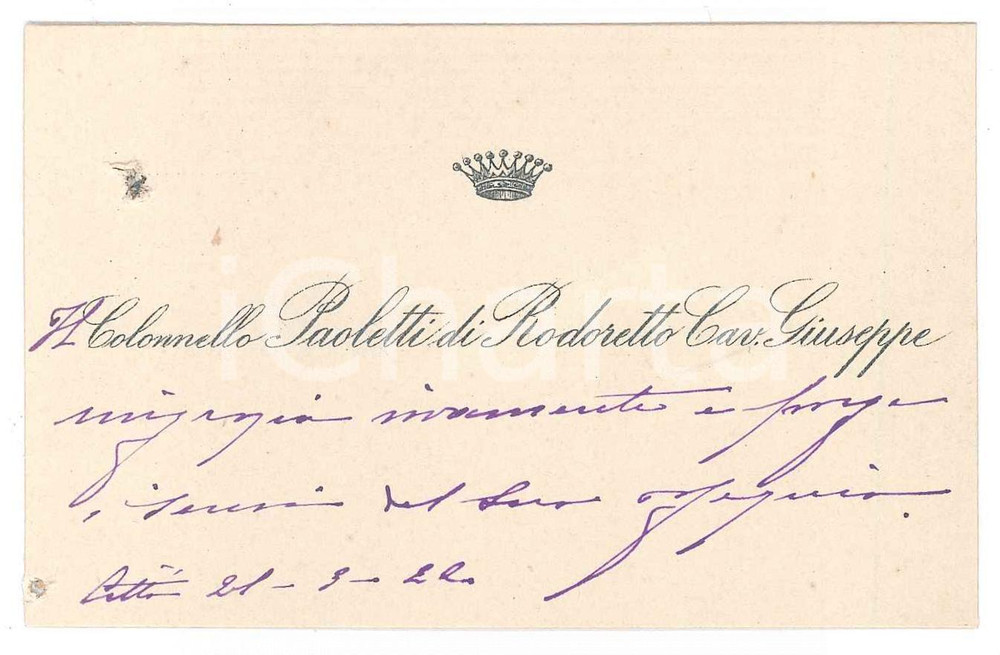 Il Colonnello Paoletti di Rodoretto Cav. Giuseppe
ringrazia vivamente e porge
i sensi del suo ossequio.
Città 21-3-22
iCharta